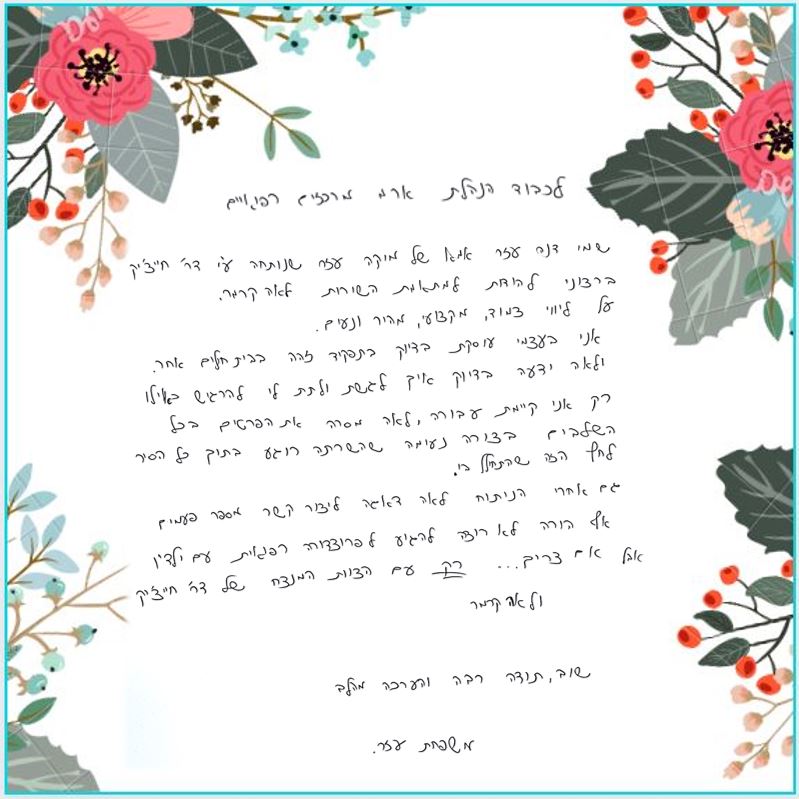 לכבוד הנהלת ארמ מרכזים רפואיים
שמי דנה עזר אמא של מיקה עזר שנותחה ע״י דר׳ חייצ׳יק
ברצוני להודות למתאמת השירות לאה קרמר.
על ליווי צמוד, מקצועי, מהיר ונעים.
אני בעצמי עוסקת בדיוק בתפקיד זהה בבית חולים אחר.
ולאה ידעה בדיוק איך לגשת ולתת לי להרגיש כאילו
רק אני קיימת עבורה, לאה מסרה את הפרטים בכל
השלבים בצורה נעימה שהשרתה רוגע בתוך כל הסיר
לחץ הזה שהתחולל בי.
גם אחרי הניתוח לאה דאגה ליצור קשר מספר פעמים
אף הורה לא רוצה להגיע לפרוצדורה רפואית עם ילדיו
אבל אם צריך... רק עם הצוות המנצח של דר׳ חייצ׳יק
ולאה קרמר
שוב, תודה רבה והערכה מהלב
משפחת עזר.